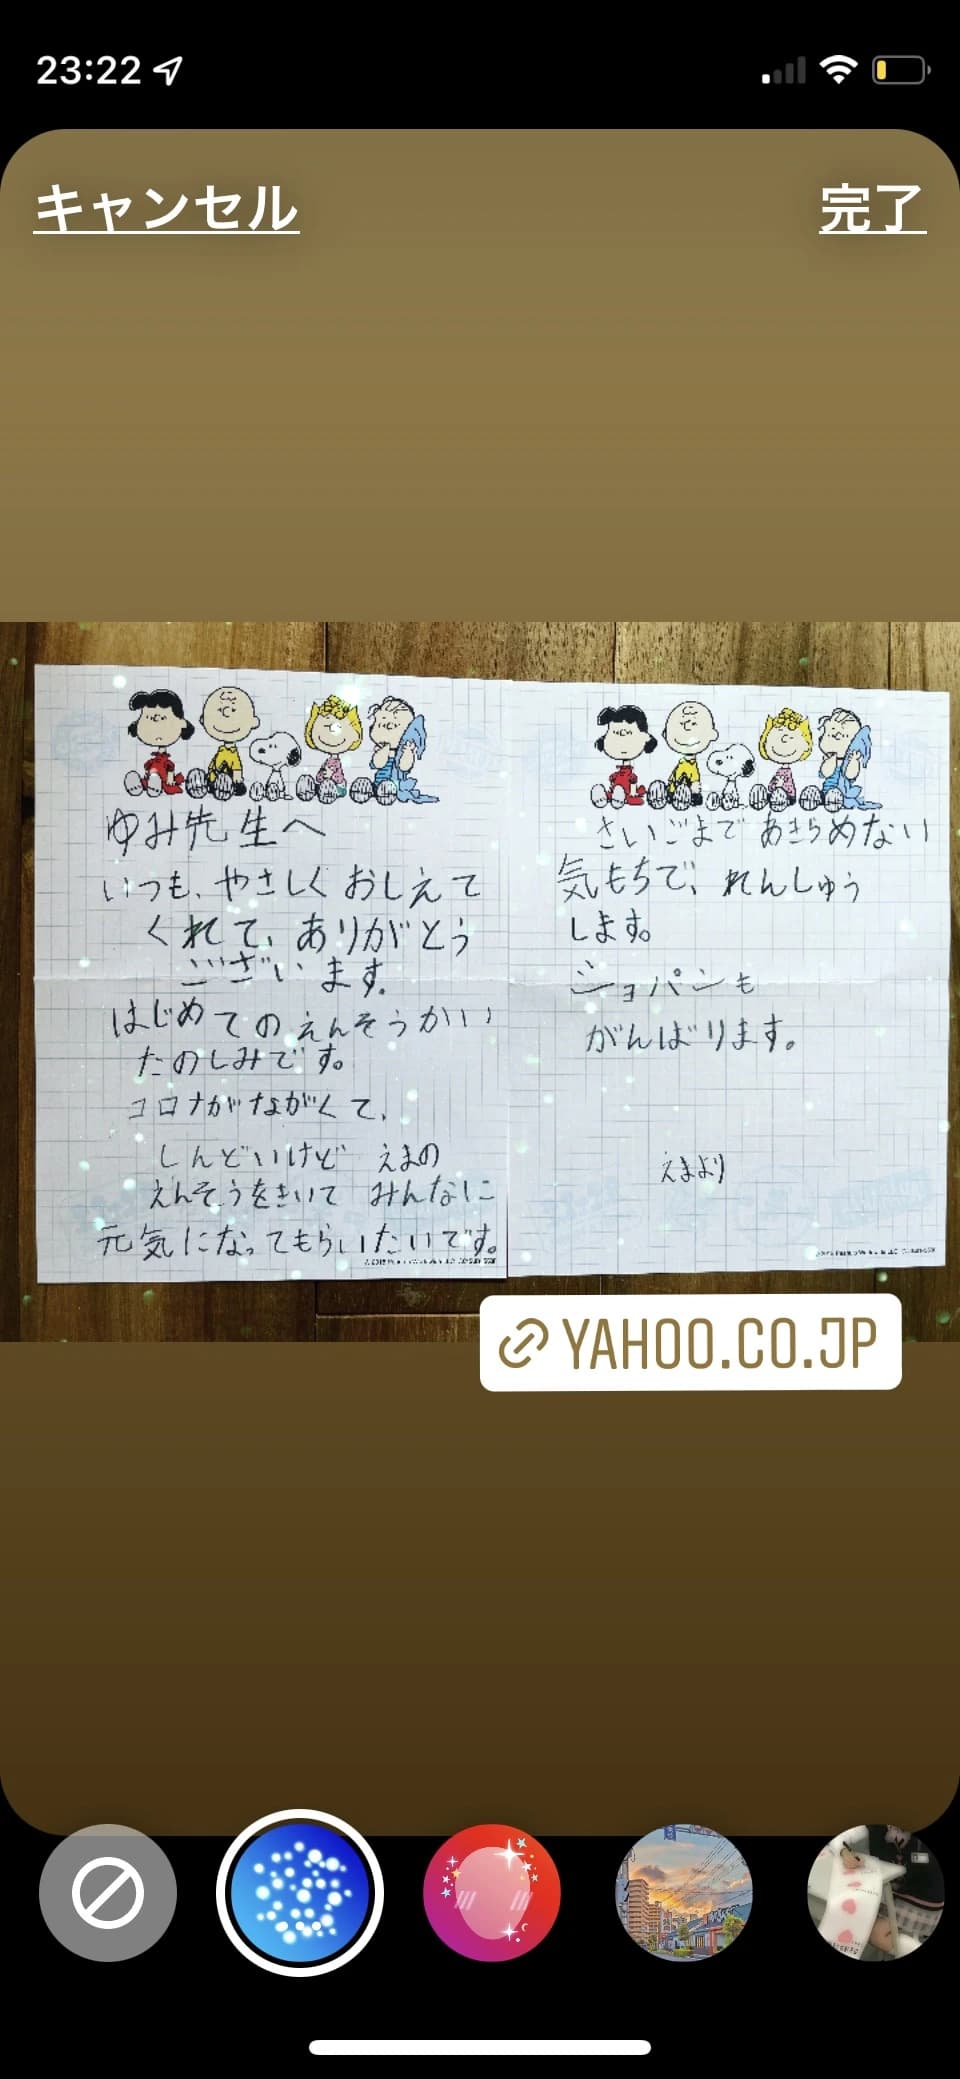 23:22
キャンセル
完了
ゆみ先生へ
いつも、やさしくおしえて
くれて、ありがとう
ございます。
はじめてのえんそうかい
たのしみです。
コロナがながくて、
しんどいけど えまの
えんそうをきいて みんなに
元気になってもらいたいです。
さいごまで あきらめない
気もちで、れんしゅう
します。
ショパンも
がんばります。
えまより
YAHOO.CO.JP